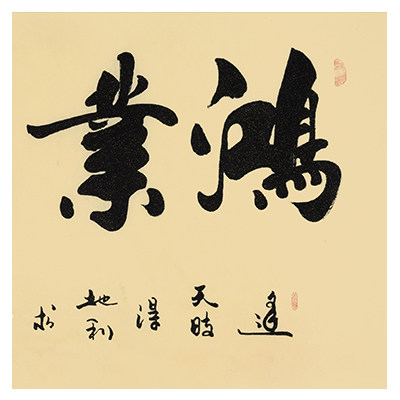 鴻業
逢
天時
得
地利